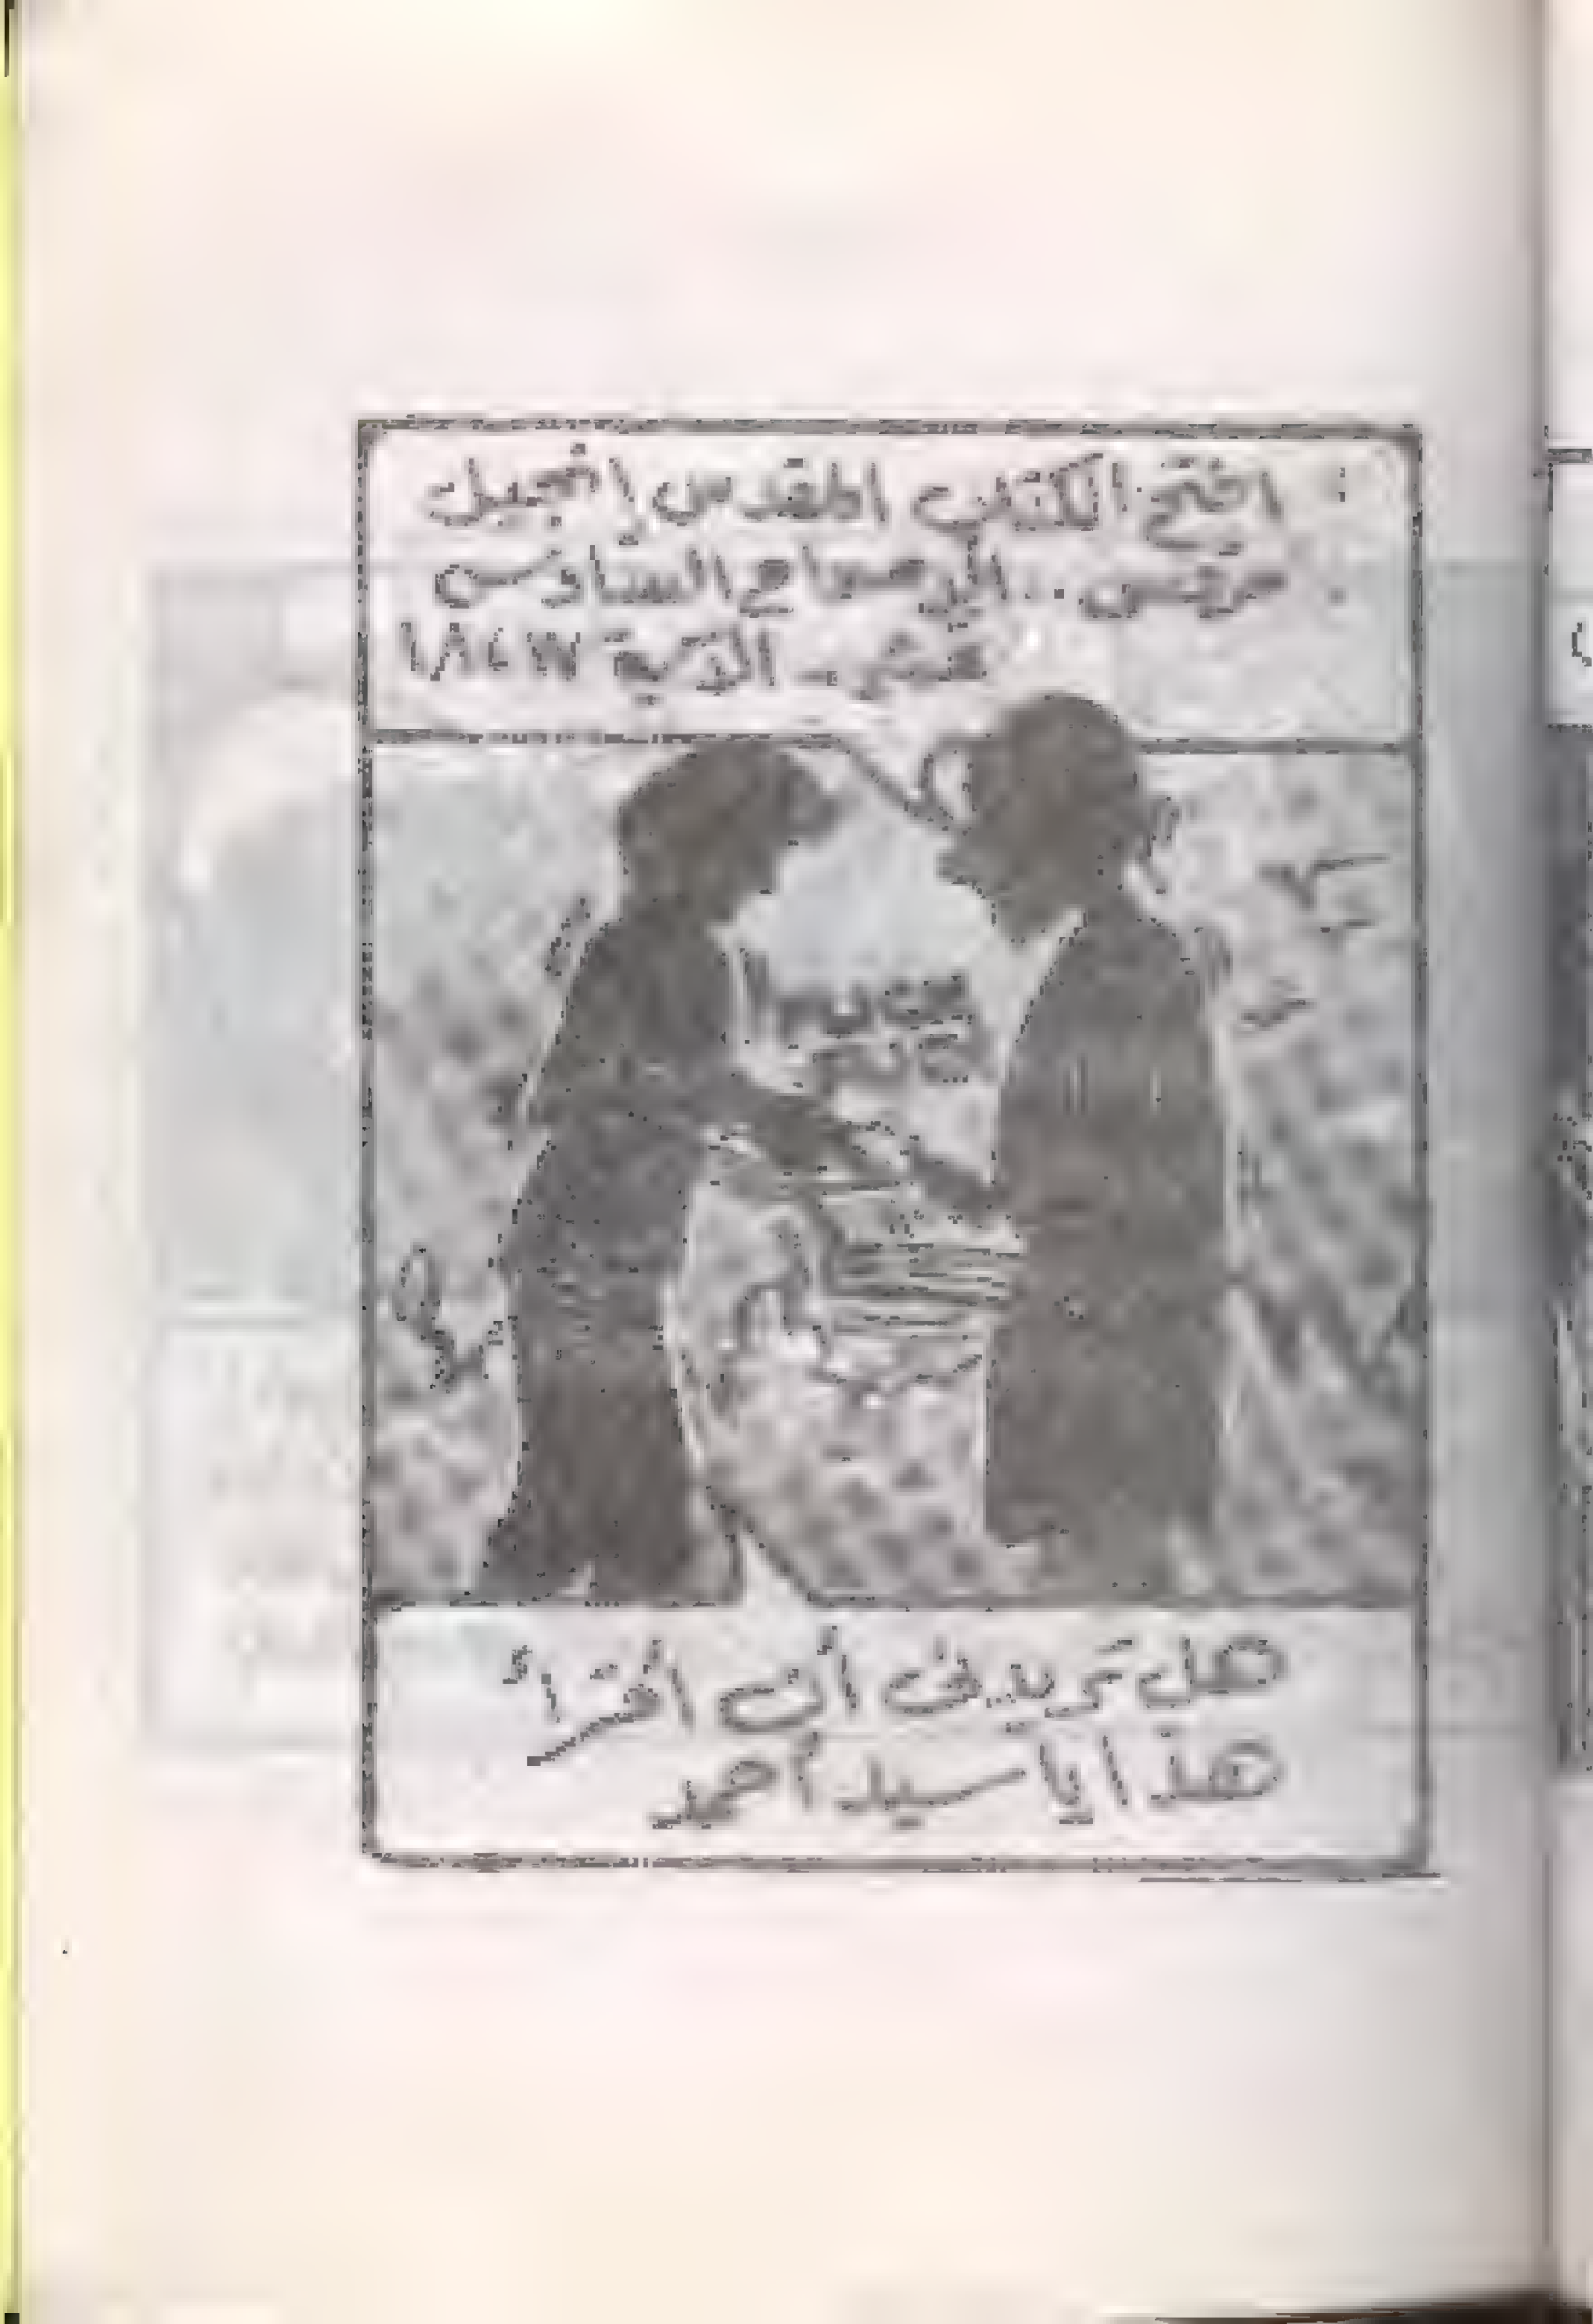 افتح الكتاب المقدس إنجيل
مرقس.. الإصحاح السادس
عشر - الآية ١٧، ١٨
هل تريدنى أن أقرأ
هذا يا سيد أحمد